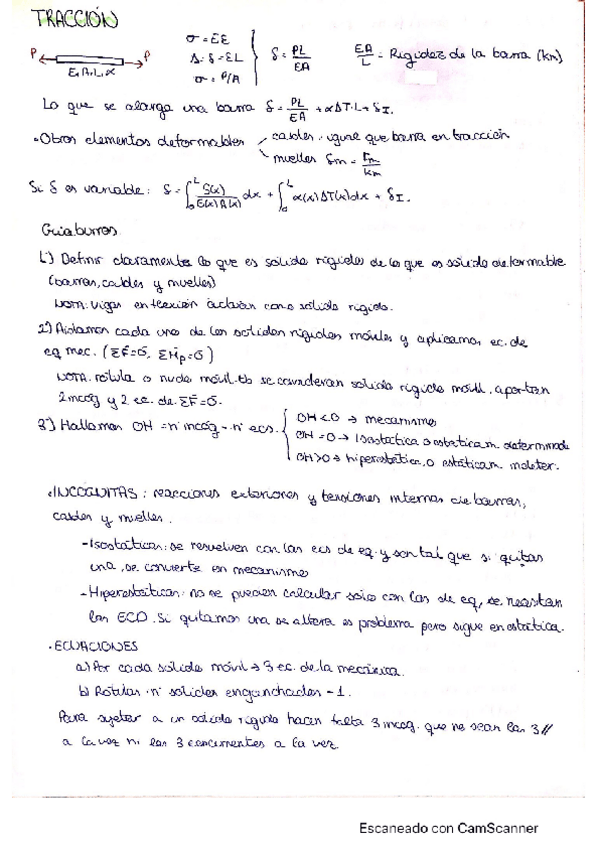 TRACCIÓN
P P E, A, L, α
σ = Eε
Δ = δ = εL
σ = P/A
δ = PL/EA
EA/L = Rigidez de la barra (km)
Lo que se alarga una barra δ = PL/EA + αΔT·L + δI.
• Otros elementos deformables
cables: igual que barra en tracción
muelles δm = Fm/km
Si δ es variable: δ = ∫₀ᴸ S(x)/E(x)A(x) dx + ∫₀ᴸ α(x)ΔT(x)dx + δI.
Guiaburros.
1) Definir claramente lo que es sólido rígido de lo que es sólido deformable
(barras, cables y muelles)
NOTA: vigas en flexión actúan como sólido rígido.
2) Aislamos cada uno de los sólidos rígidos móviles y aplicamos ec. de
eq mec. (ΣF=0, ΣMp=0)
NOTA: rótula o nudo móvil tb se consideran sólido rígido móvil, aportan
2 incóg y 2 ec. de ΣF=0.
3) Hallamos OH = nº incóg - nº ecs.
OH<0 → mecanismo
OH=0 → Isostática o estáticam. determinada
OH>0 → hiperestática, o estáticam. indeter.
• INCÓGNITAS: reacciones exteriores y tensiones internas de barras,
cables y muelles.
- Isostáticas: se resuelven con las ecs de eq. y son tal que si quitas
una, se convierte en mecanismo
- Hiperestáticas: no se pueden calcular solo con las de eq, se necesitan
las ECD. Si quitamos una se altera el problema pero sigue en estática.
• ECUACIONES
a) Por cada sólido móvil → 3 ec. de la mecánica.
b) Rótulas: nº sólidos enganchados - 1.
Para sujetar a un sólido rígido hacen falta 3 incóg. que no sean las 3 //
a la vez ni las 3 concurrentes a la vez.
Escaneado con CamScanner